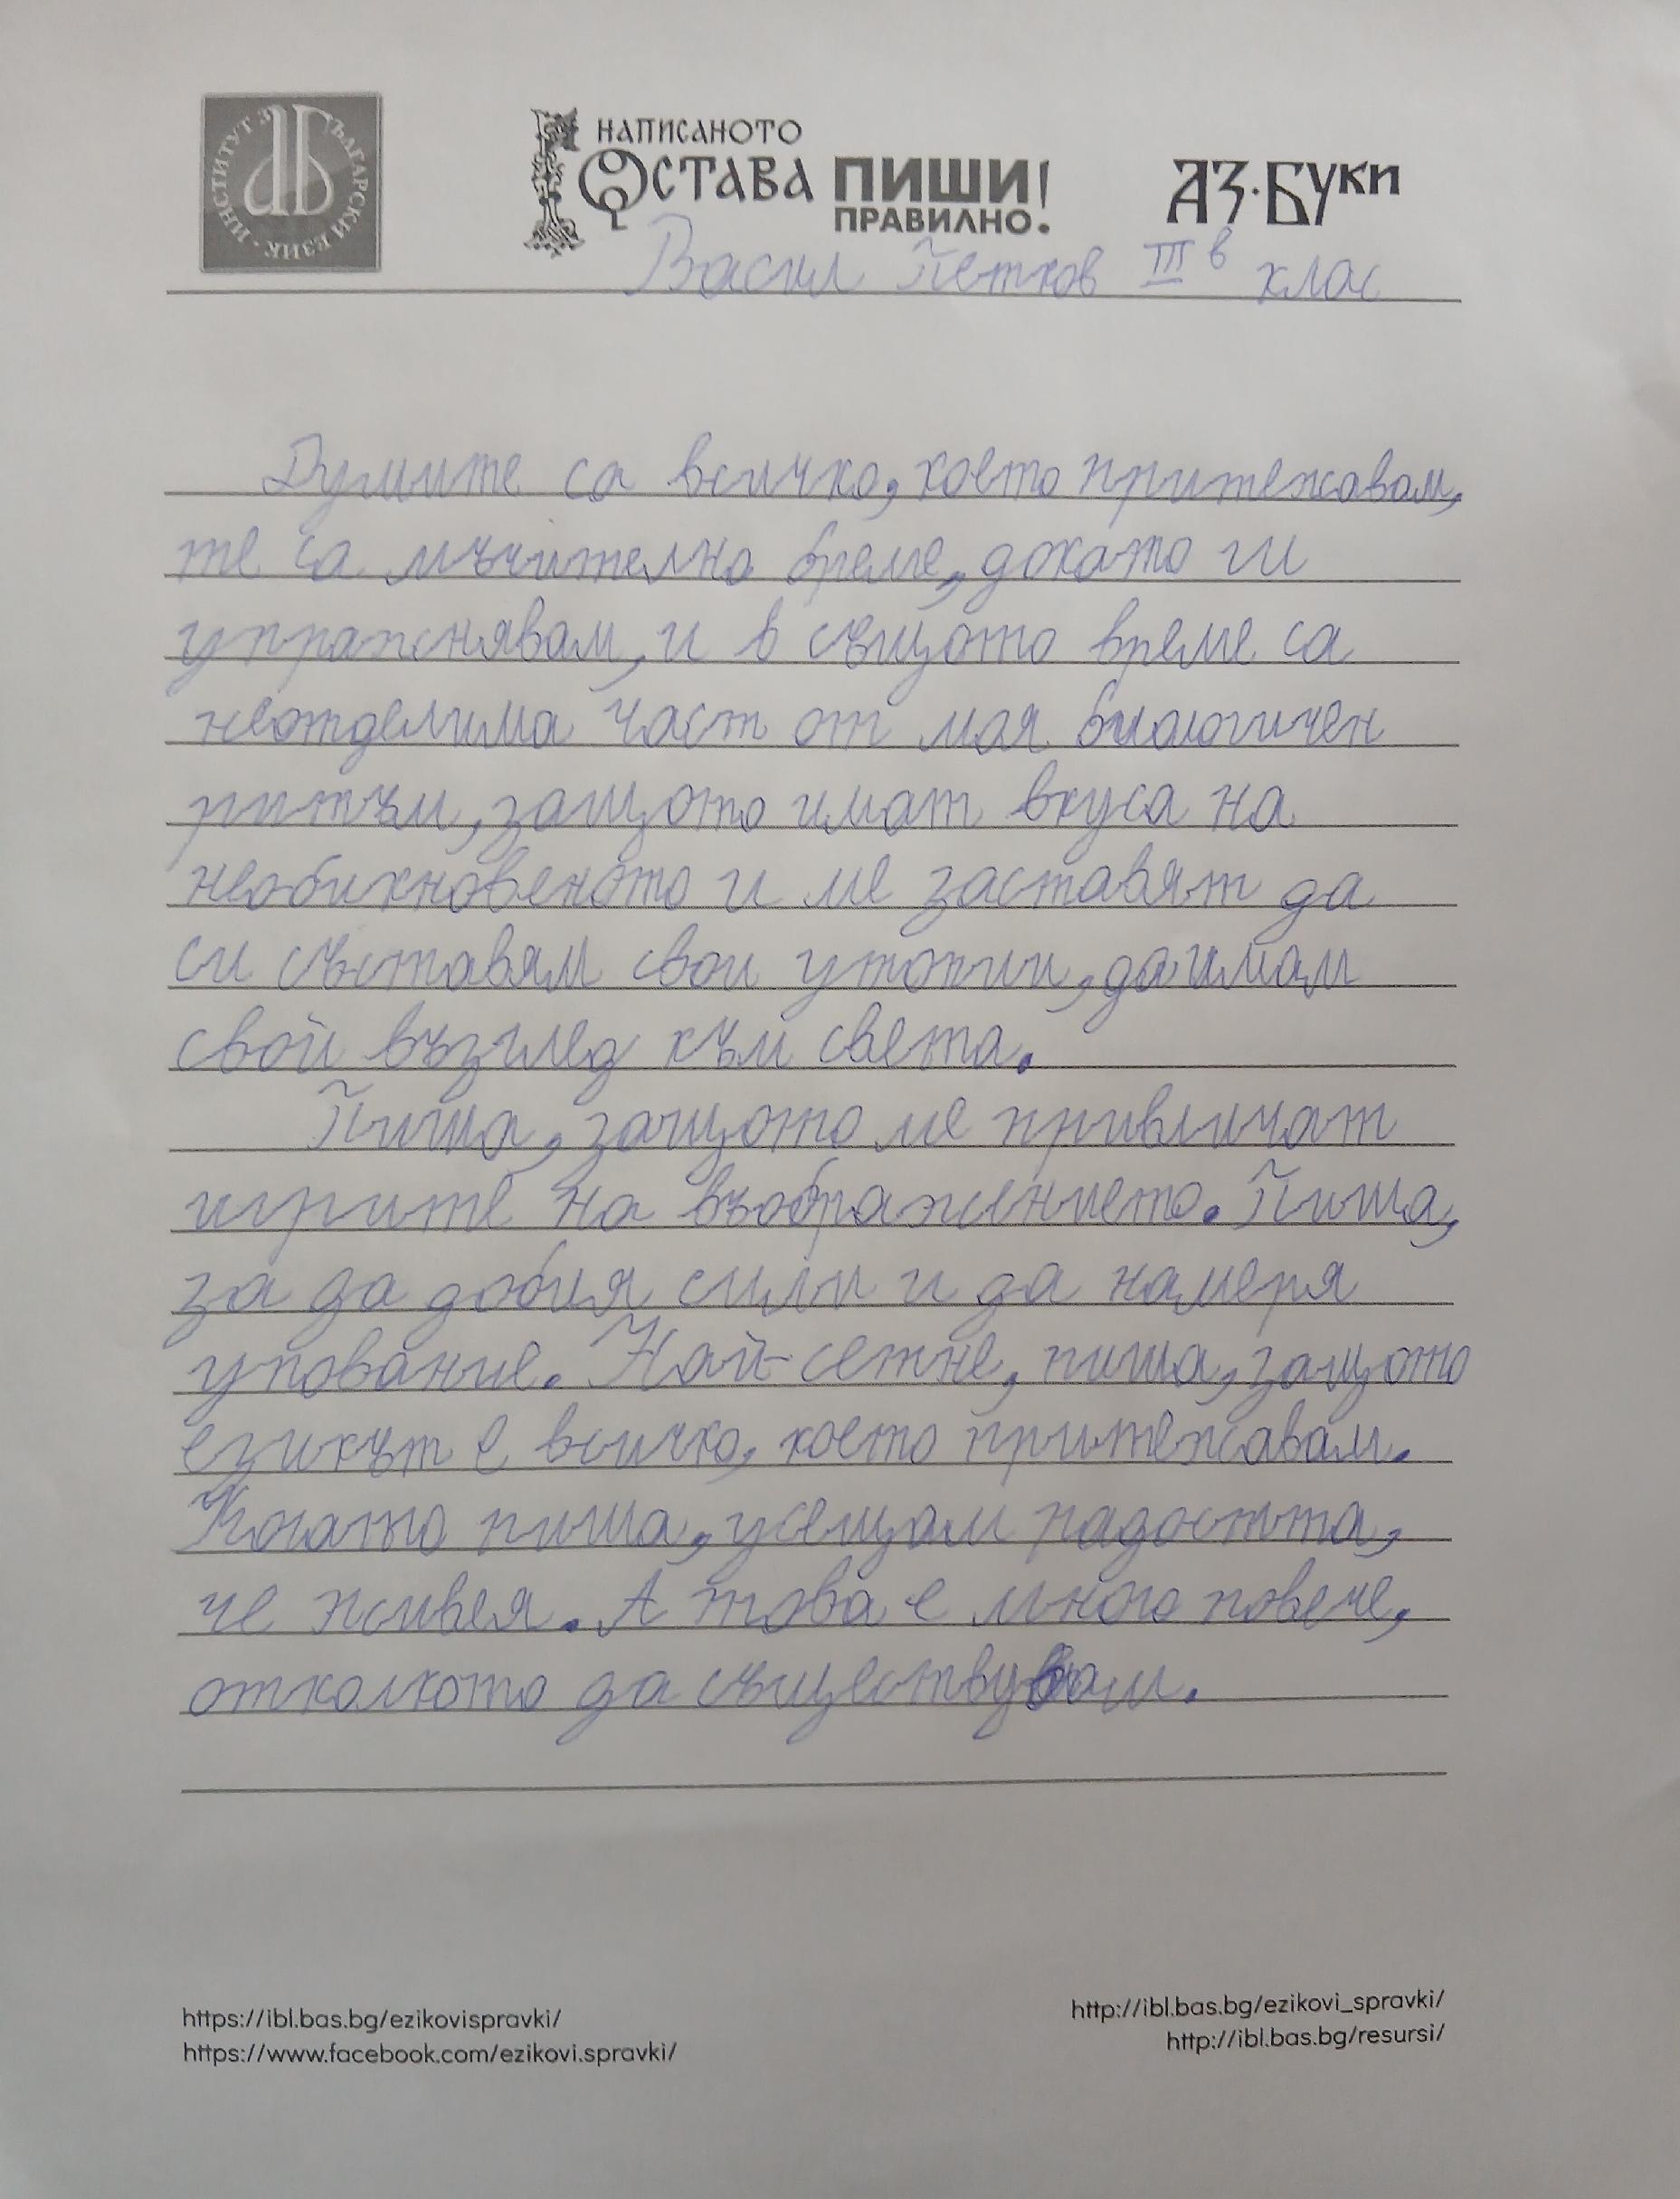 ИНСТИТУТ ЗА БЪЛГАРСКИ ЕЗИК
НАПИСАНОТО
ОСТАВА ПИШИ
ПРАВИЛНО!
АЗ·БУКИ
Васил Петков III в клас
Думите са всичко, което притежавам,
те са мъчително бреме, докато ги
упражнявам, и в същото време са
неотделима част от моя биологичен
ритъм, защото имат вкуса на
необикновеното и ме заставят да
си съставям свои утопии, да имам
свой възглед към света.
Пиша, защото ме привличат
игрите на въображението. Пиша,
за да добия сили и да намеря
упование. Най-сетне, пиша, защото
езикът е всичко, което притежавам.
Когато пиша, усещам радостта,
че живея. А това е много повече,
отколкото да съществувам.
https://ibl.bas.bg/ezikovispravki/
https://www.facebook.com/ezikovi.spravki/
http://ibl.bas.bg/ezikovi_spravki/
http://ibl.bas.bg/resursi/